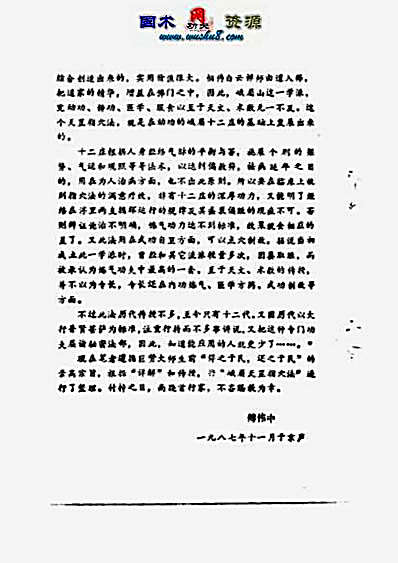 国术 功夫 资源
www.wushu8.com
综合创造出来的，实用价值很大。相传白云禅师由道入释，
把道家的精华，增益在佛门之中，因此，峨嵋山这一学派，
凡动功、静功、医学、服食以至于天文、术数无一不见。这
个天罡指穴法，就是在动功的峨嵋十二庄的基础上发展出来
的。
十二庄根据人身脏络气脉的平衡与否，施展个别的
势、气运和观照等等法术，以达到偏救弊，祛病延年之目
的，用在为人治病方面，也不出此原则。所以要在临床上收
到指穴法的满意疗效，非有十二庄的深厚功力，又能明了
络在浮里两支循环运行的规律及其盛衰偏胜的现症不可。否
则辨证论治不明确，炼气功力达不到标准，效果就会相应的
差了。又此法用在武功自卫方面，可以点穴制敌。据说当初
成立此一学派时，曾经和其它流派较量多次，因屡取胜，而
被承认为炼气功夫中最高的一套。至于天文、术数的传授，
并不以为专长，专长还在内功炼气、医学方药、武功制敌等
方面。
不过此法历代传授不多，至今只有十二代。又因历代以大
行普贤菩萨为标准，注重行持而不多事讲说，又把这种专门功
夫属诸秘密法部，因此，知道能应用的人就更少了……。”
现在笔者遵循巨赞大师生前“得之于民，还之于民”的
崇高宗旨，根据“详解”和传授，将“峨嵋天罡指穴法”进
行了整理。付梓之日，尚祈首行家，不吝赐教为幸。
傅伟中
一九八七年十一月于京声